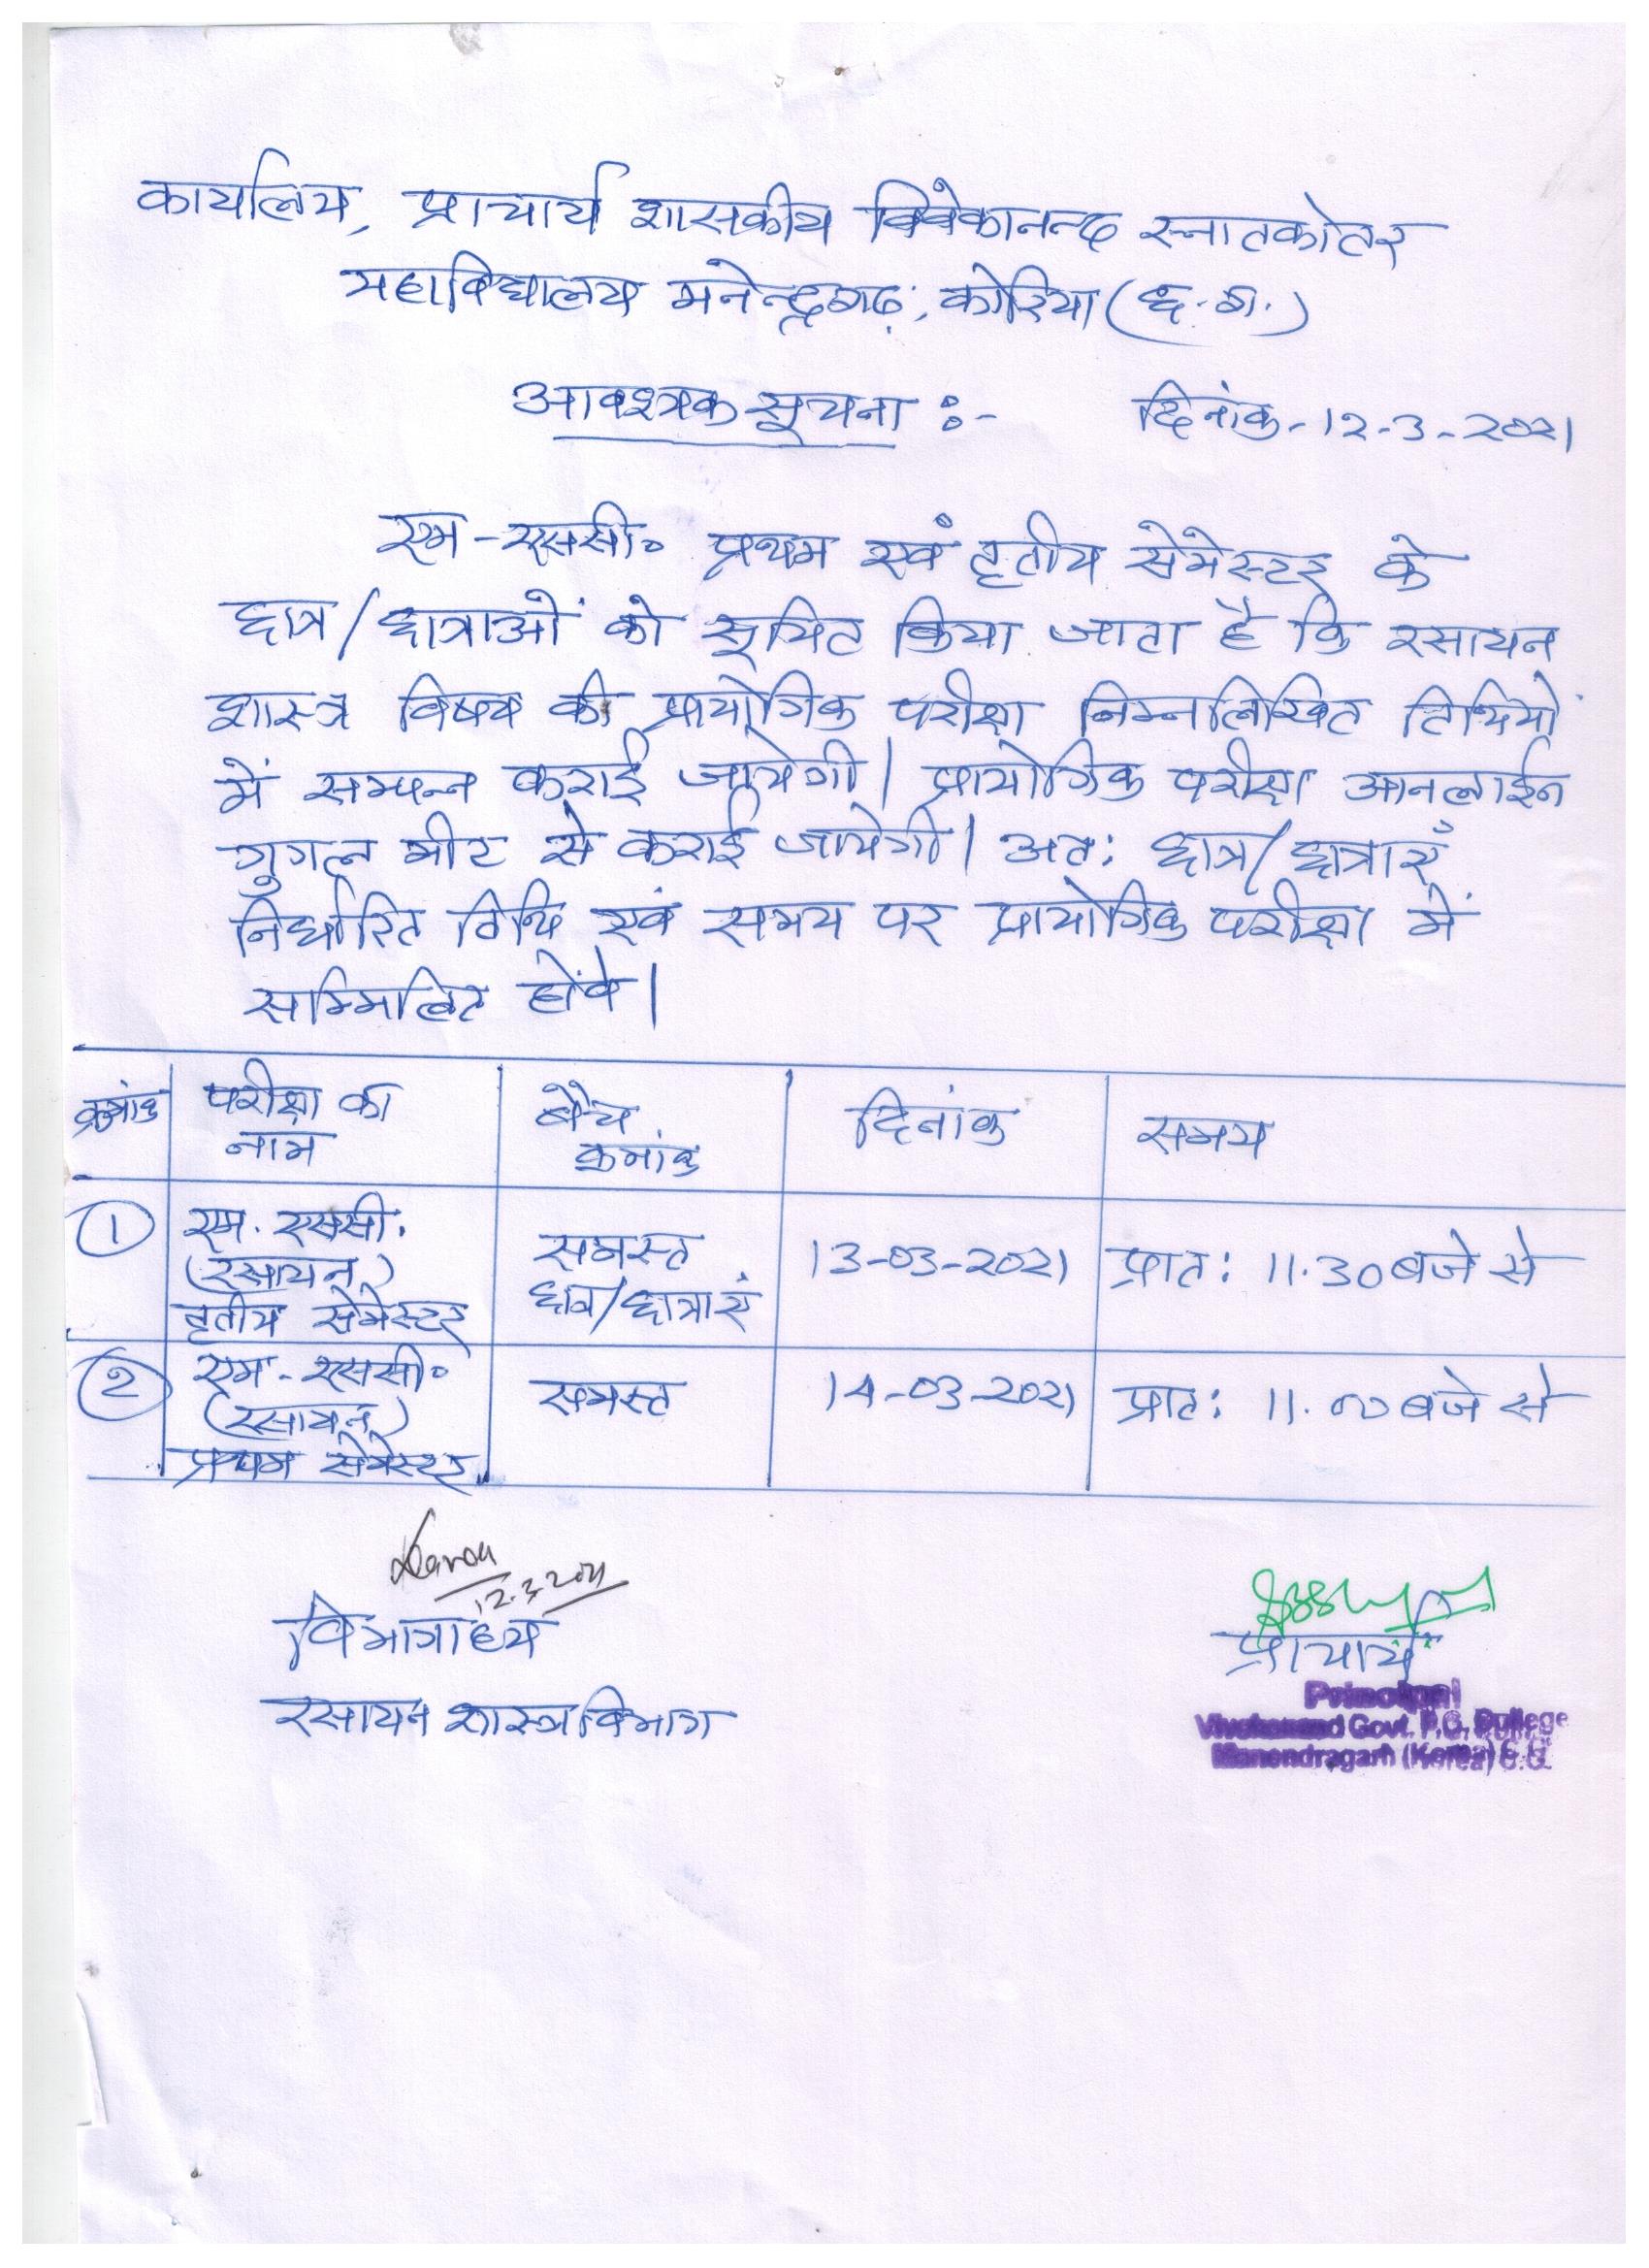 कार्यालय, प्राचार्य शासकीय विवेकानन्द स्नातकोतर
महाविद्यालय मनेन्द्रगढ़, कोरिया (छ.ग.)
आवश्यक सूचना :- दिनांक-12-3-2021
एम-एससी० प्रथम एवं तृतीय सेमेस्टर के
छात्र/छात्राओं को सूचित किया जाता है कि रसायन
शास्त्र विषय की प्रायोगिक परीक्षा निम्नलिखित तिथियों
में सम्पन्न कराई जायेगी। प्रायोगिक परीक्षा आनलाईन
गुगल मीट से कराई जायेगी। अतः छात्र/छात्राएँ
निर्धारित तिथि एवं समय पर प्रायोगिक परीक्षा में
सम्मिलित होंवे।
क्रमांक परीक्षा का नाम क्रमांक दिनांक समय
1 एम. एससी. (रसायन) तृतीय सेमेस्टर समस्त छात्र/छात्राएं 13-03-2021 प्रातः 11.30 बजे से
2 एम-एससी० (रसायन) प्रथम सेमेस्टर समस्त 14-03-2021 प्रातः 11.00 बजे से
12.3.2021
विभागाध्य
रसायन शास्त्र विभाग
प्राचार्य
Principal
Vivekanand Govt. P.G. College
Manendragarh (Korea) C.G.